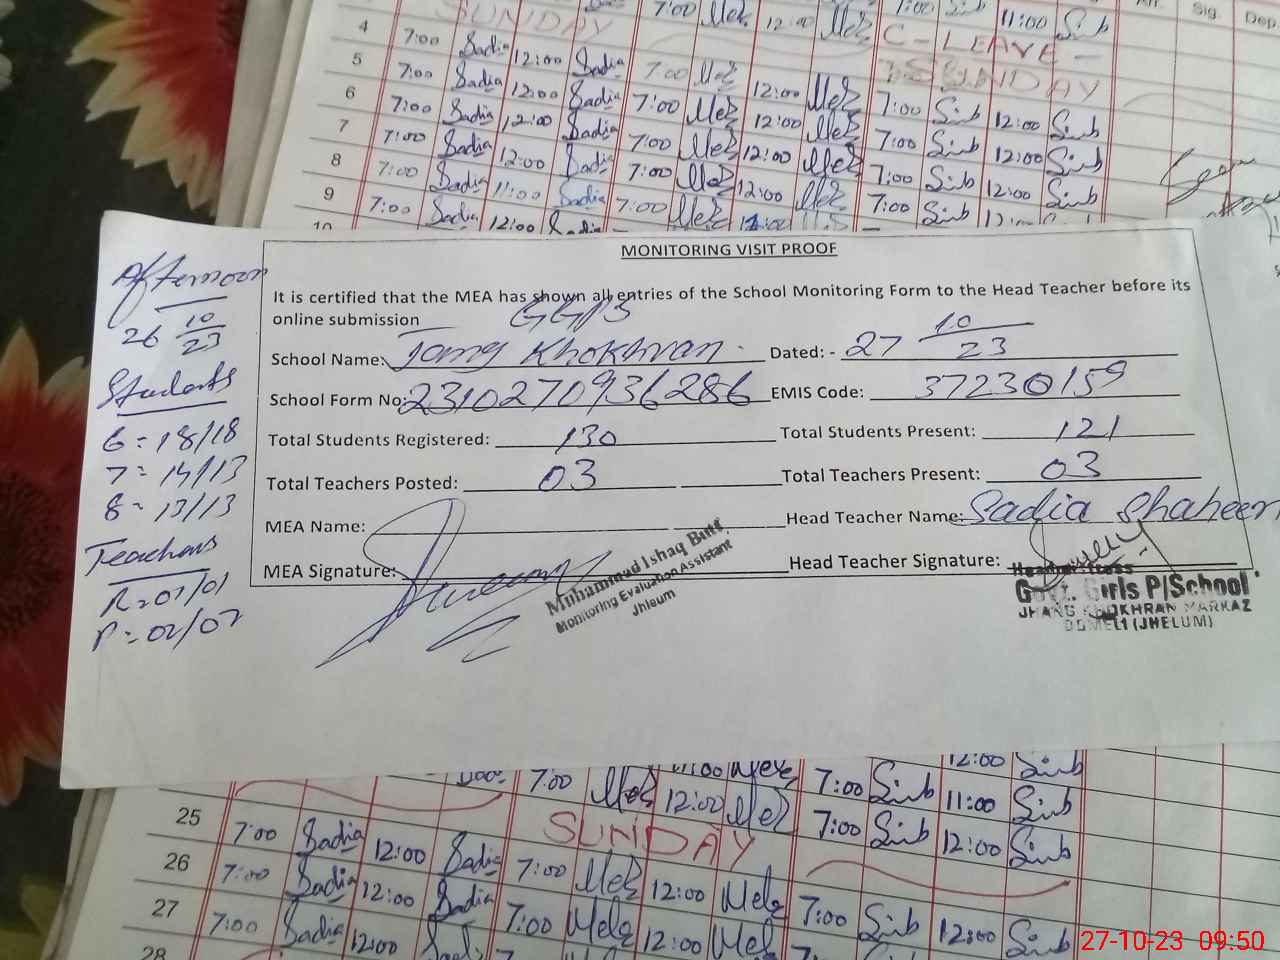 SUNDAY 7:00 Meh 12:00 Meh 7:00 Sib 11:00 Sib Sig. Dep.
4 7:00 Sadia 12:00 Sadia C-LEAVE-
5 7:00 Sadia 12:00 Sadia 7:00 Meh 12:00 Meh SUNDAY
6 7:00 Sadia 12:00 Sadia 7:00 Meh 12:00 Meh 7:00 Sib 12:00 Sib
7 7:00 Sadia 12:00 Sadia 7:00 Meh 12:00 Meh 7:00 Sib 12:00 Sib
8 7:00 Sadia 11:00 Sadia 7:00 Meh 12:00 Meh 7:00 Sib 12:00 Sib
9 7:00 Sadia 12:00 Sadia 7:00 Meh 12:00 7:00 Sib
10
Afternoon
26 10/23
Students
6 = 18/18
7 = 14/13
8 = 13/13
Teachers
R = 01/01
P = 02/02
MONITORING VISIT PROOF
It is certified that the MEA has shown all entries of the School Monitoring Form to the Head Teacher before its
online submission GGPS
School Name: Jang Khokhran Dated: - 27 10/23
School Form No: 2310270936286 EMIS Code: 37230159
Total Students Registered: 130 Total Students Present: 121
Total Teachers Posted: 03 Total Teachers Present: 03
MEA Name: Head Teacher Name: Sadia Shaheen
MEA Signature: Head Teacher Signature:
Muhammad Ishaq Butt
Monitoring Evaluation Assistant
Jhleum
Headmistress
Govt. Girls P/School
JHANG KHOKHRAN MARKAZ
DOMELI (JHELUM)
7:00 Meh 11:00 Meh 7:00 Sib 12:00 Sib
25 SUNDAY 12:00 Meh 7:00 Sib 11:00 Sib
7:00 Sadia 12:00 Sadia 7:00 Sib 12:00 Sib
26 7:00 Sadia 12:00 Sadia 7:00 Meh 12:00 Meh
27 7:00 Sadia 12:00 7:00 Meh 12:00 Meh 7:00 Sib 12:00 Sib
28
27-10-23 09:50